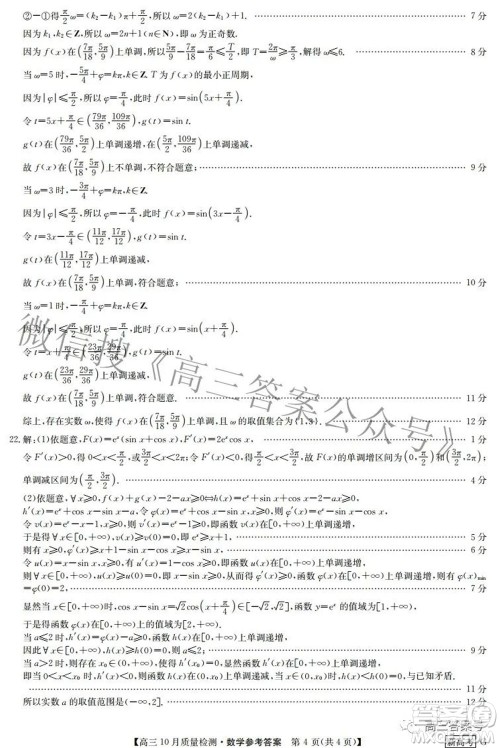 ②－①得π/2 ω=(k₂－k₁)π+π/2,所以ω=2(k₂－k₁)+1. 7分
因为k₁,k₂∈Z,所以ω=2n+1(n∈N),即ω为正奇数.
因为f(x)在(7π/18,5π/9)上单调,所以5π/9－7π/18=π/6≤T/2,即T=2π/ω≥π/3,解得ω≤6. 8分
当ω=5时,－5π/4+φ=kπ,k∈Z,T为f(x)的最小正周期,
因为|φ|≤π/2,所以φ=π/4,此时f(x)=sin(5x+π/4).
令t=5x+π/4∈(79π/36,109π/36),g(t)=sin t.
g(t)在(79π/36,5π/2)上单调递增,在(5π/2,109π/36)上单调递减,
故f(x)在(7π/18,5π/9)上不单调,不符合题意; 9分
当ω=3时,－3π/4+φ=kπ,k∈Z.
因为|φ|≤π/2,所以φ=－π/4,此时f(x)=sin(3x－π/4).
令t=3x－π/4∈(11π/12,17π/12),g(t)=sin t.
g(t)在(11π/12,17π/12)上单调递减,
故f(x)在(7π/18,5π/9)上单调,符合题意; 10分
当ω=1时,－π/4+φ=kπ,k∈Z,
因为|φ|≤π/2,所以φ=π/4,此时f(x)=sin(x+π/4).
令t=x+π/4∈(23π/36,29π/36),g(t)=sin t.
g(t)在(23π/36,29π/36)上单调递减,
故f(x)在(7π/18,5π/9)上单调,符合题意. 11分
综上,存在实数ω,使得f(x)在(7π/18,5π/9)上单调,且ω的取值集合为{1,3}. 12分
22.解:(1)依题意,F(x)=eˣ(sin x+cos x),F′(x)=2eˣcos x. 1分
令F′(x)>0,得0<x<π/2,或3π/2<x<2π;令F′(x)<0,得π/2<x<3π/2,故F(x)的单调增区间为(0,π/2)和(3π/2,2π);
单调减区间为(π/2,3π/2). 4分
(2)依题意,∀x≥0,f(x)+g(x)－2－ax≥0⇔h(x)=eˣ+sin x+cos x－2－ax≥0,
h′(x)=eˣ+cos x－sin x－a,令φ(x)=eˣ+cos x－sin x,x≥0,φ′(x)=eˣ－sin x－cos x,
令v(x)=eˣ－x－1,x≥0,则v′(x)=eˣ－1≥0,即函数v(x)在[0,+∞)上单调递增,
于是得∀x∈[0,+∞),v(x)≥v(0)=0,即eˣ≥x+1, 5分
则有x≥0,φ′(x)≥x+1－sin x－cos x≥x－sin x, 6分
令u(x)=x－sin x,x≥0,有u′(x)=1－cos x≥0,即函数u(x)在[0,+∞)上单调递增,
则∀x∈[0,+∞),u(x)≥u(0)=0,即x－sin x≥0,从而得φ′(x)≥0,函数φ(x)在[0,+∞)上单调递增,则有φ(x)min
=φ(0)=2, 7分
显然当x∈[0,+∞)时,cos x－sin x=√2cos(x+π/4)∈[－√2,√2],函数y=eˣ的值域为[1,+∞),
于是得函数φ(x)在[0,+∞)上的值域为[2,+∞).
当a≤2时,h′(x)=φ(x)－a≥0,函数h(x)在[0,+∞)上单调递增,
因此∀x∈[0,+∞),h(x)≥h(0)=0,则a≤2; 9分
当a>2时,则存在x₀∈(0,+∞),使得h′(x₀)=0,显然函数h′(x)在[0,+∞)上单调递增,
即当0<x<x₀时,h′(x)<0,函数h(x)在(0,x₀)上单调递减,当x∈(0,x₀)时,h(x)<h(0)=0,与已知矛盾.
11分
所以实数a的取值范围是(－∞,2]. 12分
微信搜《高三答案公众号》
【高三10月质量检测·数学参考答案 第4页(共4页)】
高三答案号